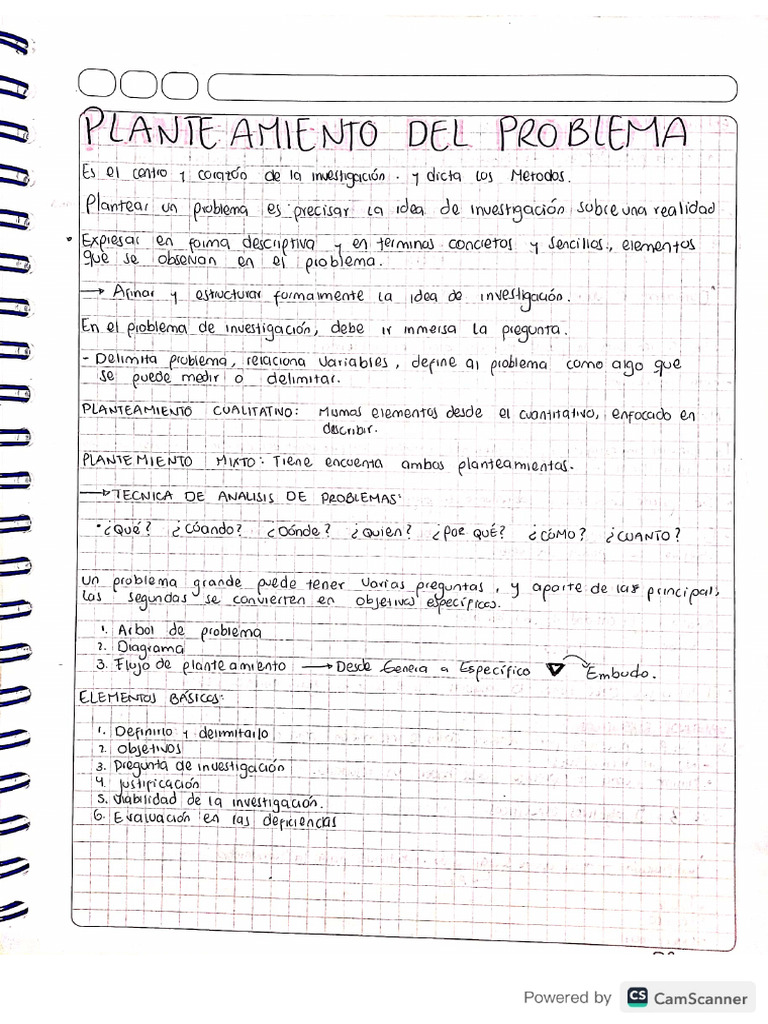 PLANTEAMIENTO DEL PROBLEMA
Es el centro y corazón de la investigación. y dicta los Metodos.
Plantear un problema es precisar la idea de investigación sobre una realidad
• Expresar en forma descriptiva y en terminos concretos y sencillos, elementos
que se observan en el problema.
→ Afinar y estructurar formalmente la idea de investigación.
En el problema de investigación, debe ir inmersa la pregunta.
- Delimita problema, relaciona variables, define al problema como algo que
se puede medir o delimitar.
PLANTEAMIENTO CUALITATIVO: Mismos elementos desde el cuantitativo, enfocado en
describir.
PLANTEMIENTO MIXTO: Tiene encuenta ambos planteamientos.
→ TECNICA DE ANALISIS DE PROBLEMAS:
• ¿Qué? ¿Cúando? ¿Dónde? ¿Quien? ¿POR QUÉ? ¿CÓMO? ¿CUANTO?
un problema grande puede tener varias preguntas, y aparte de las principal,
las segundas se convierten en objetivos específicos.
1. Arbol de problema
2. Diagrama
3. Flujo de planteamiento → Desde Genera a Específico Embudo.
ELEMENTOS BÁSICOS:
1. Definirlo y delimitarlo
2. Objetivos
3. Pregunta de investigación
4. Justificación
5. Viabilidad de la investigación.
6. Evaluación en las deficiencias
Powered by CS CamScanner